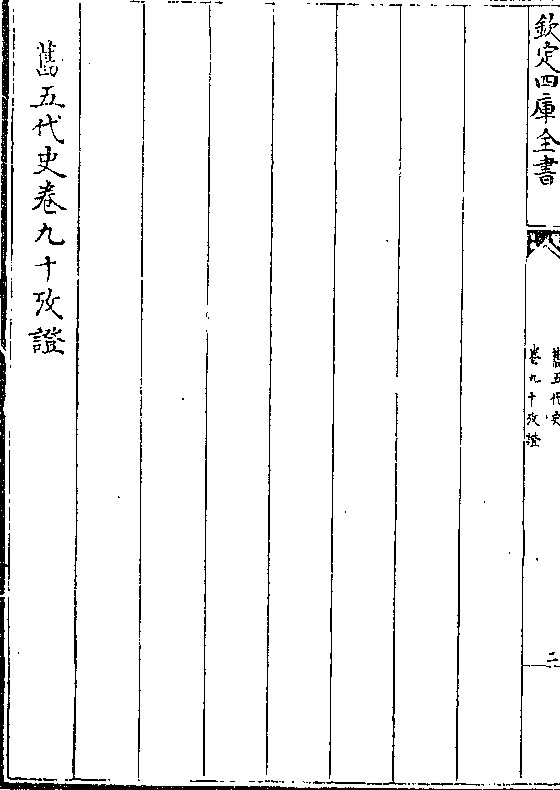 欽定四庫全書
舊五代史
卷九十攷證
二
舊五代史卷九十攷證